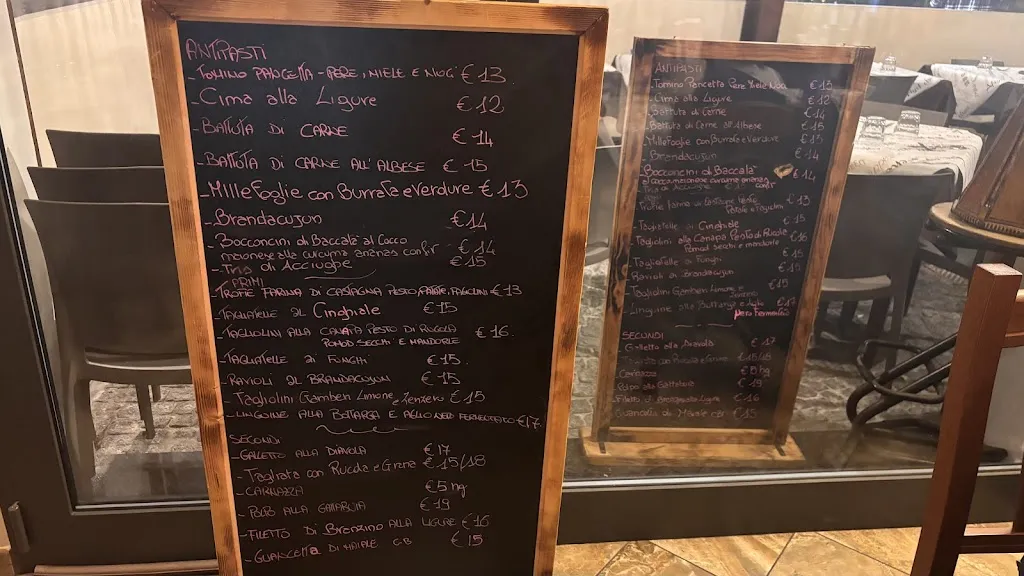 ANTIPASTI
- TOMINO PANCETTA - PERE, MIELE E NOCI €13
- Cima alla Ligure €12
- BATTUTA DI CARNE €14
- BATTUTA DI CARNE ALL'ALBESE €15
- Millefoglie con Burrata e Verdure €13
- Brandacujun €14
- Bocconcini di Baccalà al Cocco
maionese alla curcuma ananas €14
- Tris di Acciughe €15
PRIMI
- TROFIE FARINA DI CASTAGNA PESTO, PATATE, FAGIOLINI €13
- TAGLIATELLE AL Cinghiale €15
- TAGLIOLINI ALLA CANAPA PESTO DI RUCOLA
POMOD SECCHI E MANDORLE €16
- TAGLIATELLE AI FUNGHI €15
- RAVIOLI AL BRANDACUJUN €15
- Tagliolini Gamberi Limone e Zenzero €15
- LINGUINE ALLA BOTTARGA E AGLIO NERO FERMENTATO €17
SECONDI
- GALLETTO ALLA DIAVOLA €17
- Tagliata con Rucola e Grana €15/18
- €5 hg
- POLPO ALLA €19
- FILETTO DI Branzino ALLA LIGURE €16
- GUANCETTA DI MAIALE CBT €15
ANTIPASTI
- Tomino Pancetta Pere Miele Noci €13
- Cima alla Ligure €12
- Battuta di Carne €14
- Battuta di Carne all'Albese €15
- Millefoglie con Burrata e Verdure €13
- Brandacujun €14
- Bocconcini di Baccalà €14
- Trofie farina di Castagne Pesto €13
Patate e Fagiolini
- Tagliatelle al Cinghiale €15
- Tagliolini alla Canapa Pesto di Rucola €16
Pomod secchi e mandorle
- Tagliatelle ai Funghi €15
- Ravioli al Brandacujun €15
- Tagliolini Gamberi Limone e €15
- Linguine alla Bottarga e Aglio €17
Nero Fermentato
SECONDI
- Galletto alla Diavola €17
- Tagliata con Rucola e Grana €15/18
- €5 hg
- Polpo alla €19
- Filetto di Branzino alla Ligure €16
- Guancetta di Maiale CBT €15